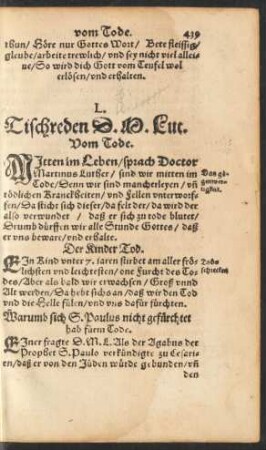 vom Tode. 439
thun/ Höre nur Gottes Wort/ Bete fleissig/
gleube/arbeite trewlich/ vnd sey nicht viel allei-
ne/ So wird dich Gott vom Teufel wol
erlösen/vnd erhalten.
L.
Tischreden D. M. Lut.
Vom Tode.
MItten im Leben/ sprach Doctor
Martinus Luther/ sind wir mitten im
Tode/ Denn wir sind mancherleyen/ vñ
tödlichen Kranckheiten/ vnd Fellen vnterworf-
fen/ Da sticht sich dieser/ da felt der/ da wird der
also verwundet / daß er sich zu tode blutet/
Drumb dürffen wir alle Stunde Gottes/ daß
er vns beware/ vnd erhalte.
Der Kinder Tod.
EIn Kind vnter 7. jaren stirbet am aller frö-
lichsten vnd leichtesten/ one Furcht des To-
des/ Aber als bald wir erwachsen/ Groß vnnd
Alt werden/ Da hebt sichs an/ daß wir den Tod
vnd die Helle fülen/ vnd vns dafür fürchten.
Todts
schrecken
Warumb sich S. Paulus nicht gefürchtet
hab fürm Tode.
EIner fragte D. M. L. Als der Agabus der
Prophet S. Paulo verkündigte zu Cesari-
en/ daß er von den Jüden würde gebunden/ vñ
den